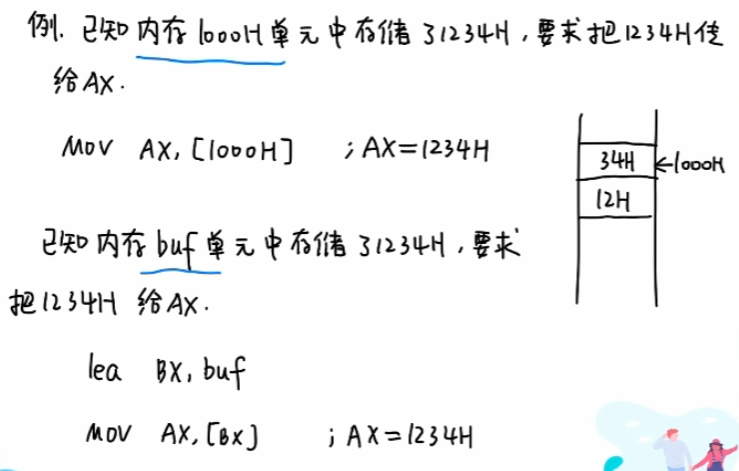 例. 已知内存1000H单元中存储了1234H,要求把1234H传
给AX.
MOV AX, [1000H] ; AX=1234H
34H ←1000H
12H
已知内存buf单元中存储了1234H,要求
把1234H 给AX.
lea BX, buf
MOV AX, [BX] ; AX=1234H